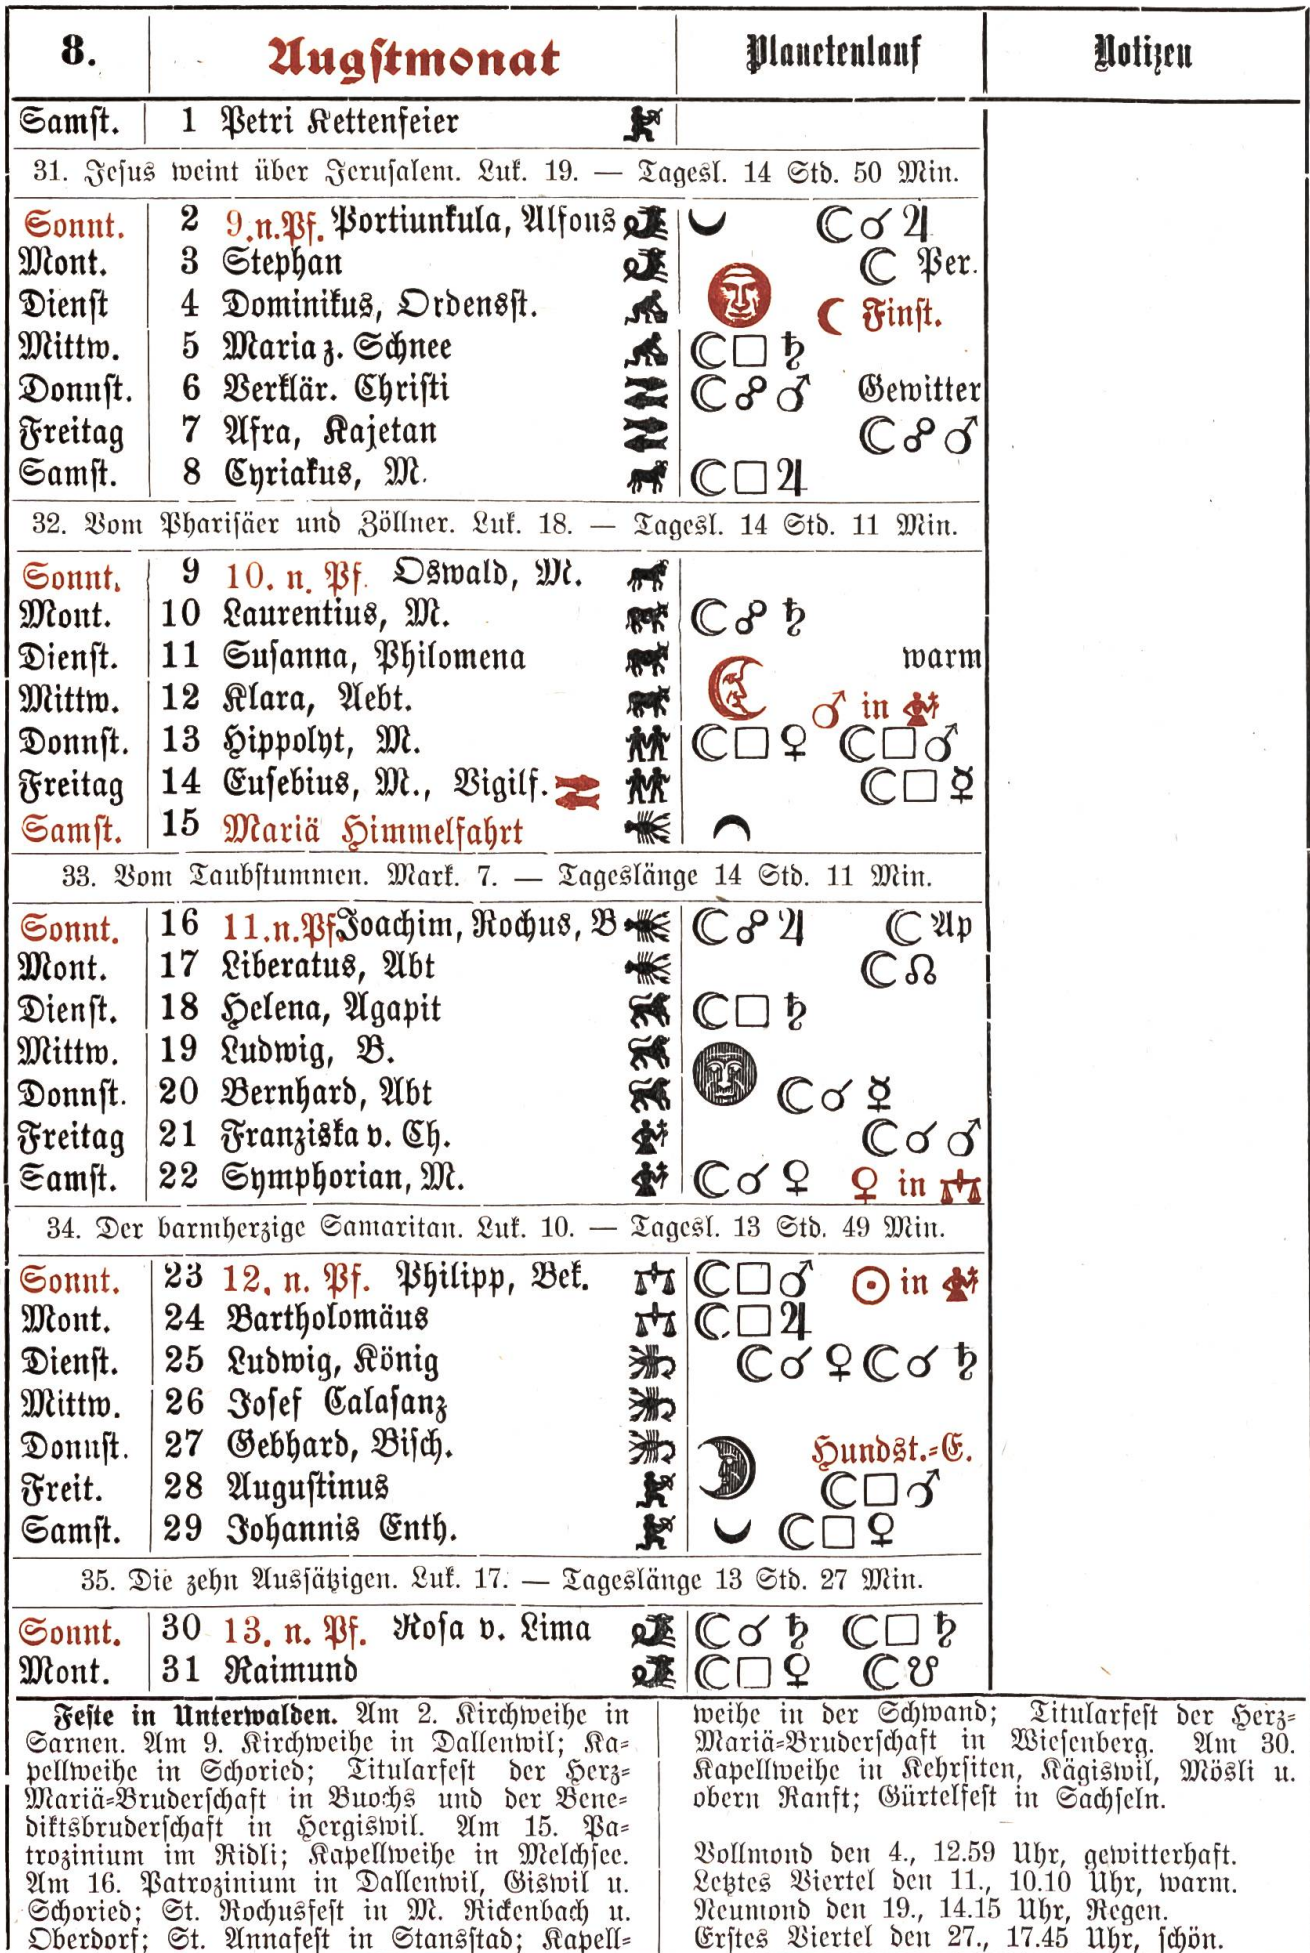 8. Augstmonat Planetenlauf Notizen
Samst. 1 Petri Kettenfeier
31. Jesus weint über Jerusalem. Luk. 19. — Tagesl. 14 Std. 50 Min.
Sonnt. 2 9.n.Pf. Portiunkula, Alfons ☾ ☌ ♃
Mont. 3 Stephan ☾ Per.
Dienst 4 Dominikus, Ordensst. ☾ Finst.
Mittw. 5 Maria z. Schnee ☾ □ ♄
Donnst. 6 Verklär. Christi ☾ ☍ ♂ Gewitter
Freitag 7 Afra, Kajetan ☾ ☍ ♂
Samst. 8 Cyriakus, M. ☾ □ ♃
32. Vom Pharisäer und Zöllner. Luk. 18. — Tagesl. 14 Std. 11 Min.
Sonnt. 9 10. n. Pf. Oswald, M.
Mont. 10 Laurentius, M. ☾ ☍ ♄
Dienst. 11 Susanna, Philomena warm
Mittw. 12 Klara, Aebt. ♂ in
Donnst. 13 Hippolyt, M. ☾ □ ♀ ☾ □ ♂
Freitag 14 Eusebius, M., Vigilf. ☾ □ ☿
Samst. 15 Mariä Himmelfahrt
33. Vom Taubstummen. Mark. 7. — Tageslänge 14 Std. 11 Min.
Sonnt. 16 11.n.Pf. Joachim, Rochus, B ☾ ☍ ♃ ☾ Ap
Mont. 17 Liberatus, Abt ☾ ☊
Dienst. 18 Helena, Agapit ☾ □ ♄
Mittw. 19 Ludwig, B.
Donnst. 20 Bernhard, Abt ☾ ☌ ☿
Freitag 21 Franziska v. Ch. ☾ ☌ ♂
Samst. 22 Symphorian, M. ☾ ☌ ♀ ♀ in
34. Der barmherzige Samaritan. Luk. 10. — Tagesl. 13 Std. 49 Min.
Sonnt. 23 12. n. Pf. Philipp, Bek. ☾ □ ♂ ☉ in
Mont. 24 Bartholomäus ☾ □ ♃
Dienst. 25 Ludwig, König ☾ ☌ ♀ ☾ ☌ ♄
Mittw. 26 Josef Calasanz
Donnst. 27 Gebhard, Bisch. Hundst.-E.
Freit. 28 Augustinus ☾ □ ♂
Samst. 29 Johannis Enth. ☾ □ ♀
35. Die zehn Aussätzigen. Luk. 17. — Tageslänge 13 Std. 27 Min.
Sonnt. 30 13. n. Pf. Rosa v. Lima ☾ ☌ ♄ ☾ □ ♄
Mont. 31 Raimund ☾ □ ♀ ☾ ☋
Feste in Unterwalden. Am 2. Kirchweihe in
Sarnen. Am 9. Kirchweihe in Dallenwil; Ka-
pellweihe in Schoried; Titularfest der Herz-
Mariä-Bruderschaft in Buochs und der Bene-
diktsbruderschaft in Hergiswil. Am 15. Pa-
trozinium im Ridli; Kapellweihe in Melchsee.
Am 16. Patrozinium in Dallenwil, Giswil u.
Schoried; St. Rochusfest in M. Rickenbach u.
Oberdorf; St. Annafest in Stansstad; Kapell-
weihe in der Schwand; Titularfest der Herz-
Mariä-Bruderschaft in Wiesenberg. Am 30.
Kapellweihe in Kehrsiten, Kägiswil, Mösli u.
obern Ranft; Gürtelfest in Sachseln.
Vollmond den 4., 12.59 Uhr, gewitterhaft.
Letztes Viertel den 11., 10.10 Uhr, warm.
Neumond den 19., 14.15 Uhr, Regen.
Erstes Viertel den 27., 17.45 Uhr, schön.